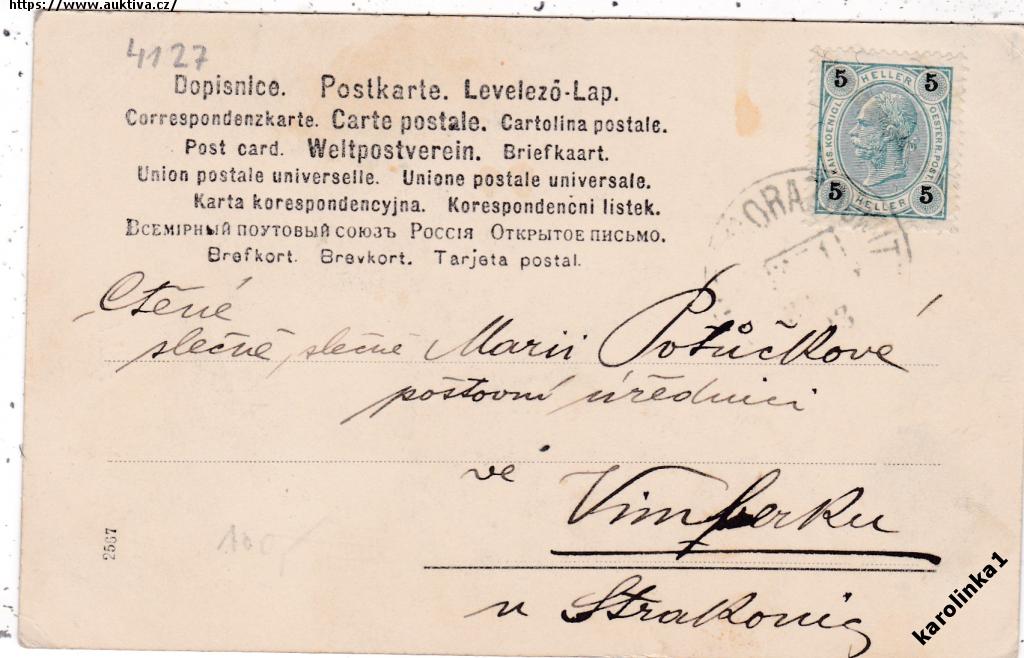 https://www.auktiva.cz/
4127
Dopisnice. Postkarte. Levelező-Lap.
Correspondenzkarte. Carte postale. Cartolina postale.
Post card. Weltpostverein. Briefkaart.
Union postale universelle. Unione postale universale.
Karta korespondencyjna. Korespondencni listek.
Всемірный поутовый союзъ Россія Открытое письмо.
Brefkort. Brevkort. Tarjeta postal.
5 HELLER 5
KAIS. KOENIGL. OESTERR. POST.
5 HELLER 5
Ctěné
slečně, slečně Marii Potůčkové
poštovní úřednici
ve
Vimperku
u Strakonic
2567
100/
karolinka1